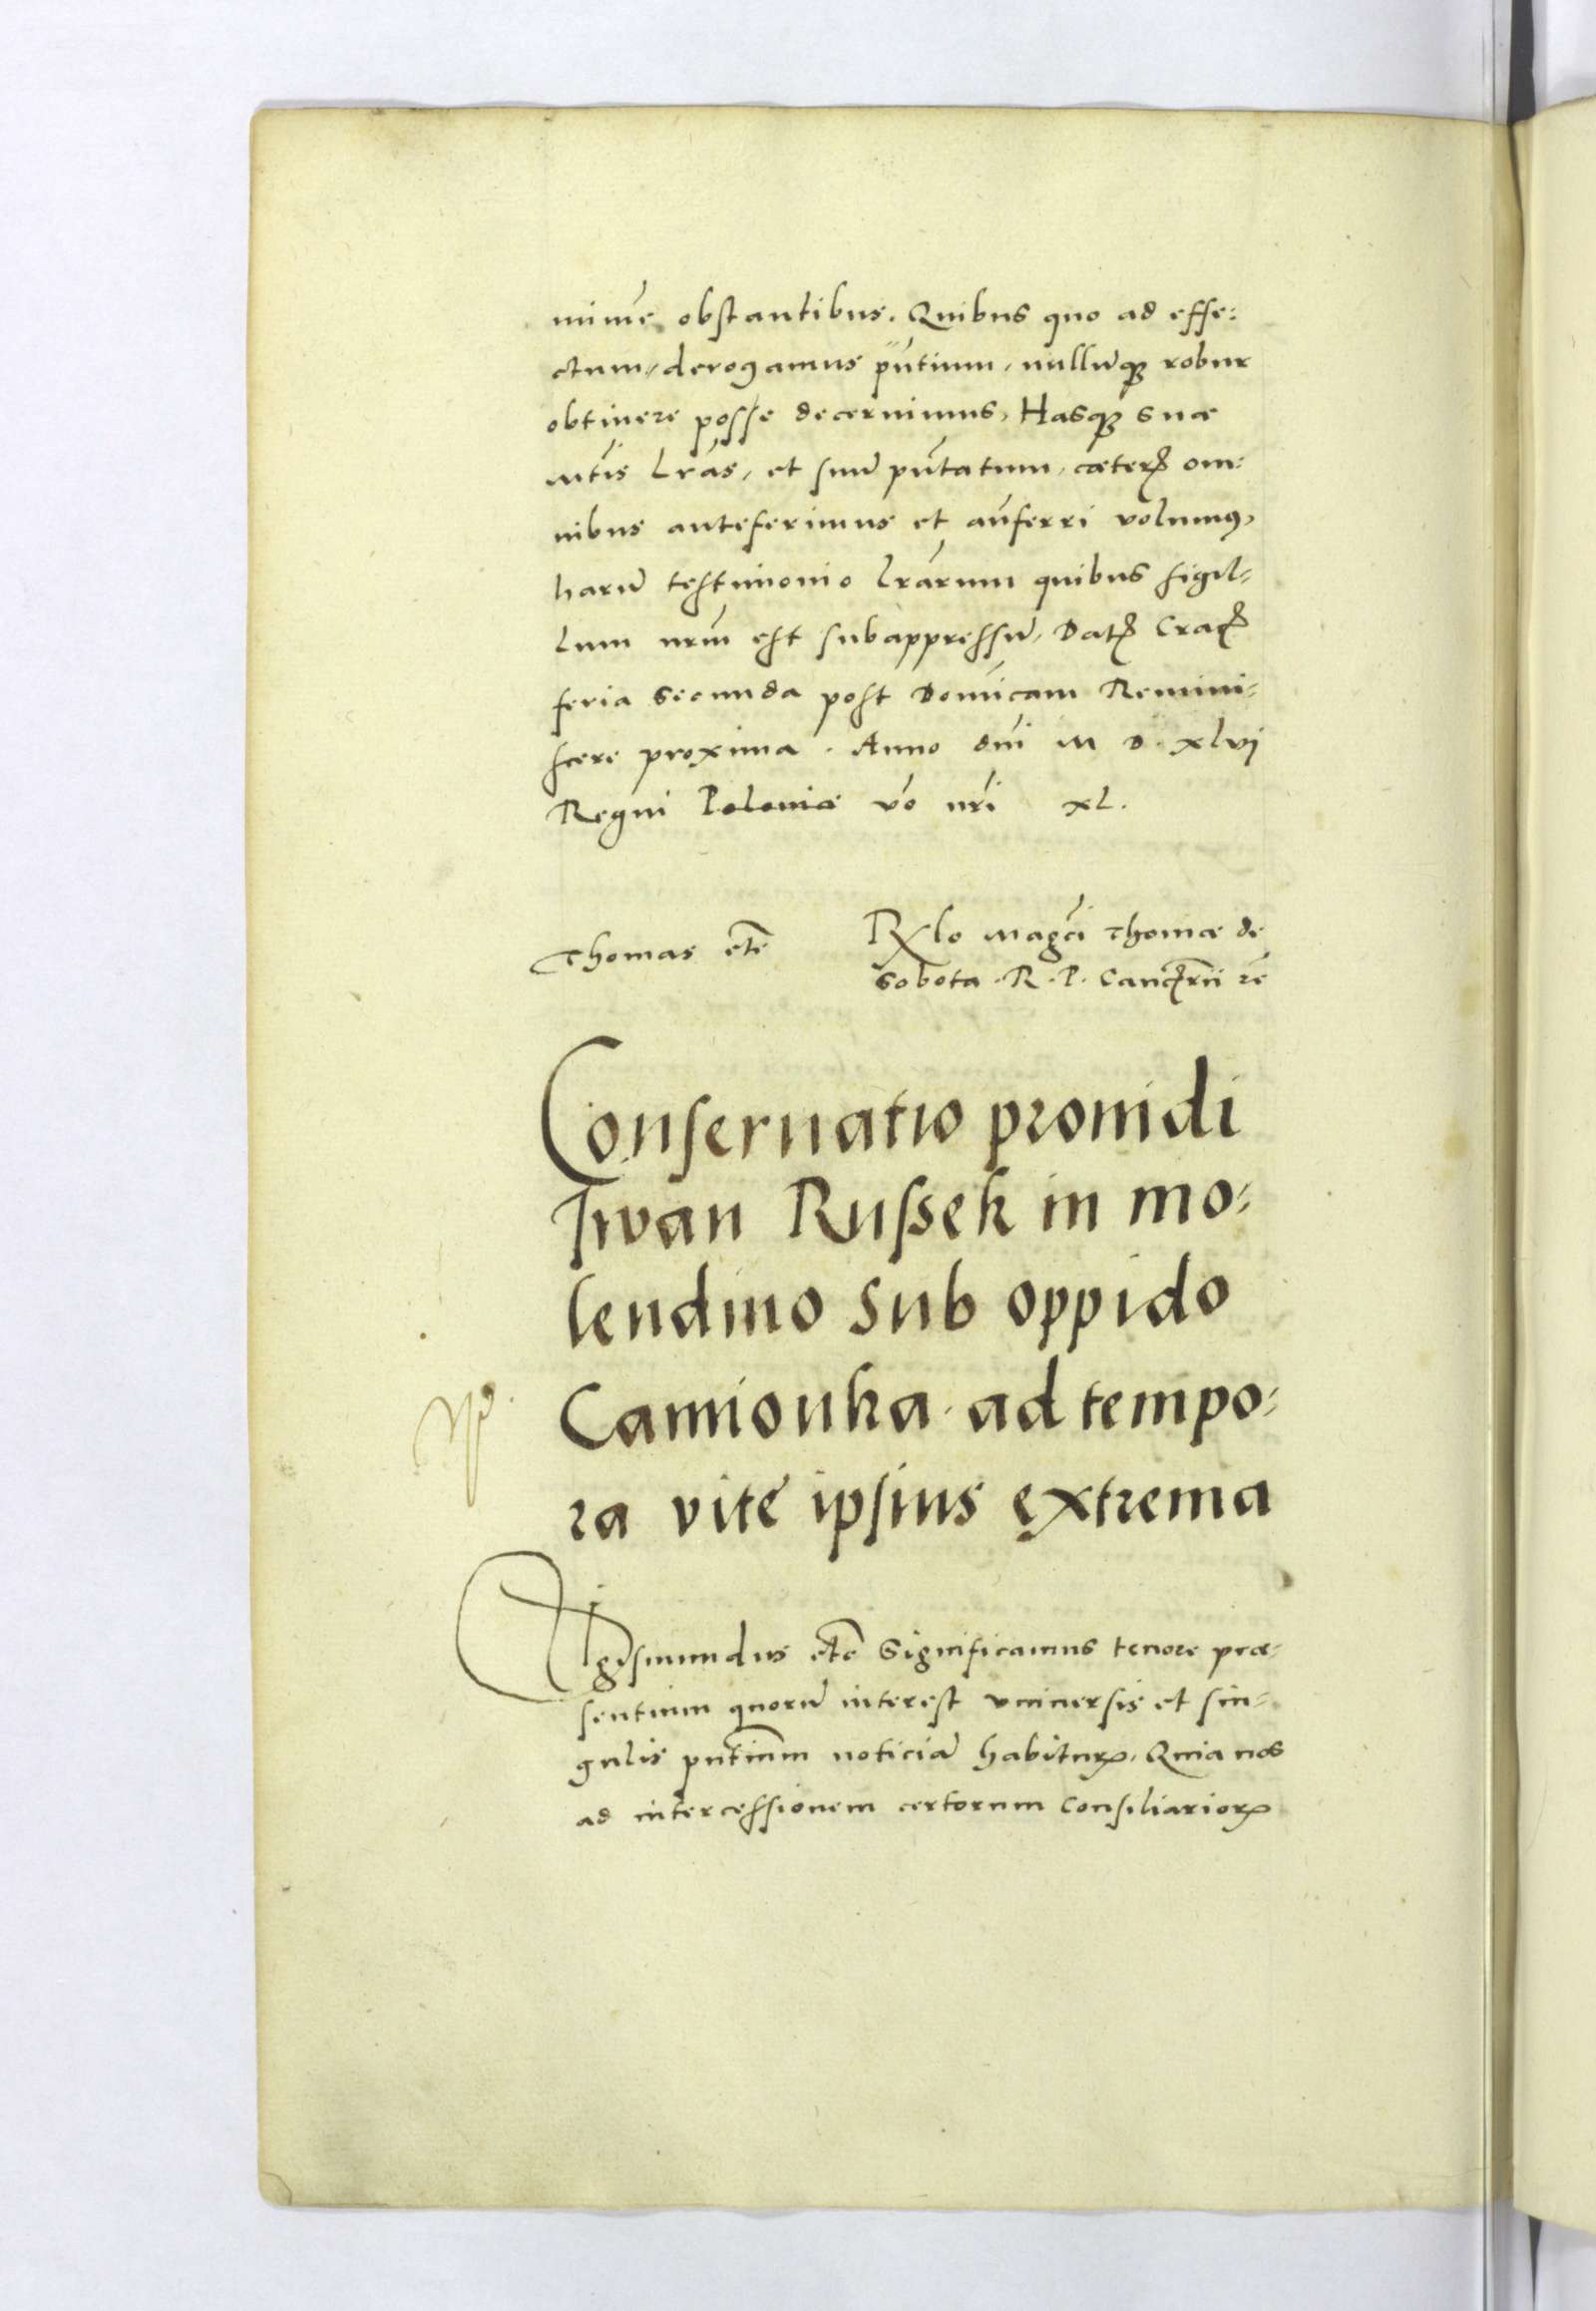 minime obstantibus. Quibus quo ad effe:
ctum, derogamus pntium, nullumq3 robur
obtinere posse decernimus, Hasq3 suæ
Mtis Lrãs, et suũ pñtatum, cæterꝭ om:
nibus anteferimus et anferri volumus,
harũ testimonio Lrãrum quibus sigil=
lum nrm̃ est subappressũ, Datꝭ Cracꝭ
feria secunda post Domĩcam Remini=
scere proxima. Anno dnĩ M D xlvj
Regni Poloniæ vo nrĩ xl.
Thomas etc̃
Rlo Magci Thomæ de
Sobota. R. P. Canclrii rẽ
Conseruatio prouidi
Iwan Russek in mo:
lendino sub oppido
Camionka ad tempo:
ra vite ipsius extrema
Sigismundus etc̃ Significamus tenore præ=
sentium quorũ interest vniuersis et sin=
gulis pntium noticiã habiturꝝ, Quia nos
ad intercessionem certorum Consiliariorꝝ